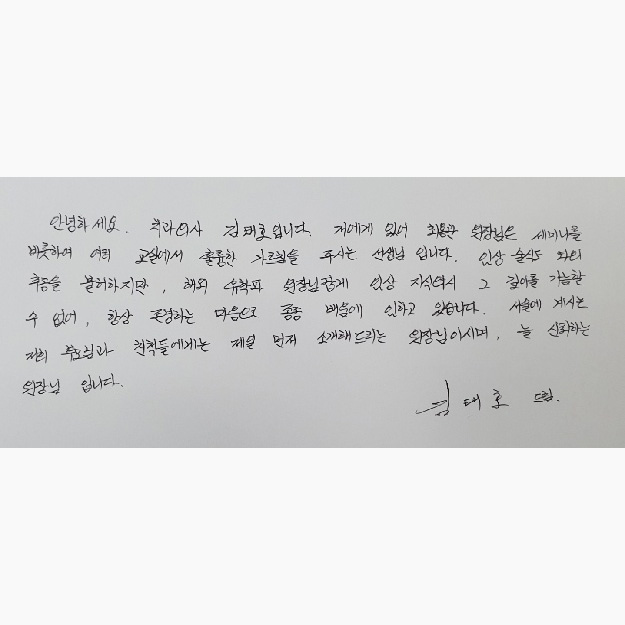 안녕하세요. 치과의사 김태호입니다. 저에게 있어 최용관 원장님은 세미나를
비롯하여 여러 교실에서 훌륭한 가르침을 주시는 선생님 입니다. 임상 술식도
추종을 불허하지만, 해외 유학파 원장님답게 임상 지식역시 그 깊이를 가늠할
수 없어, 항상 존경하는 마음으로 종종 배움에 임하고 있습니다. 서울에 계시는
저희 부모님과 친척들에게는 제일 먼저 소개해드리는 원장님이시며, 늘 신뢰하는
원장님 입니다.
김태호 드림.